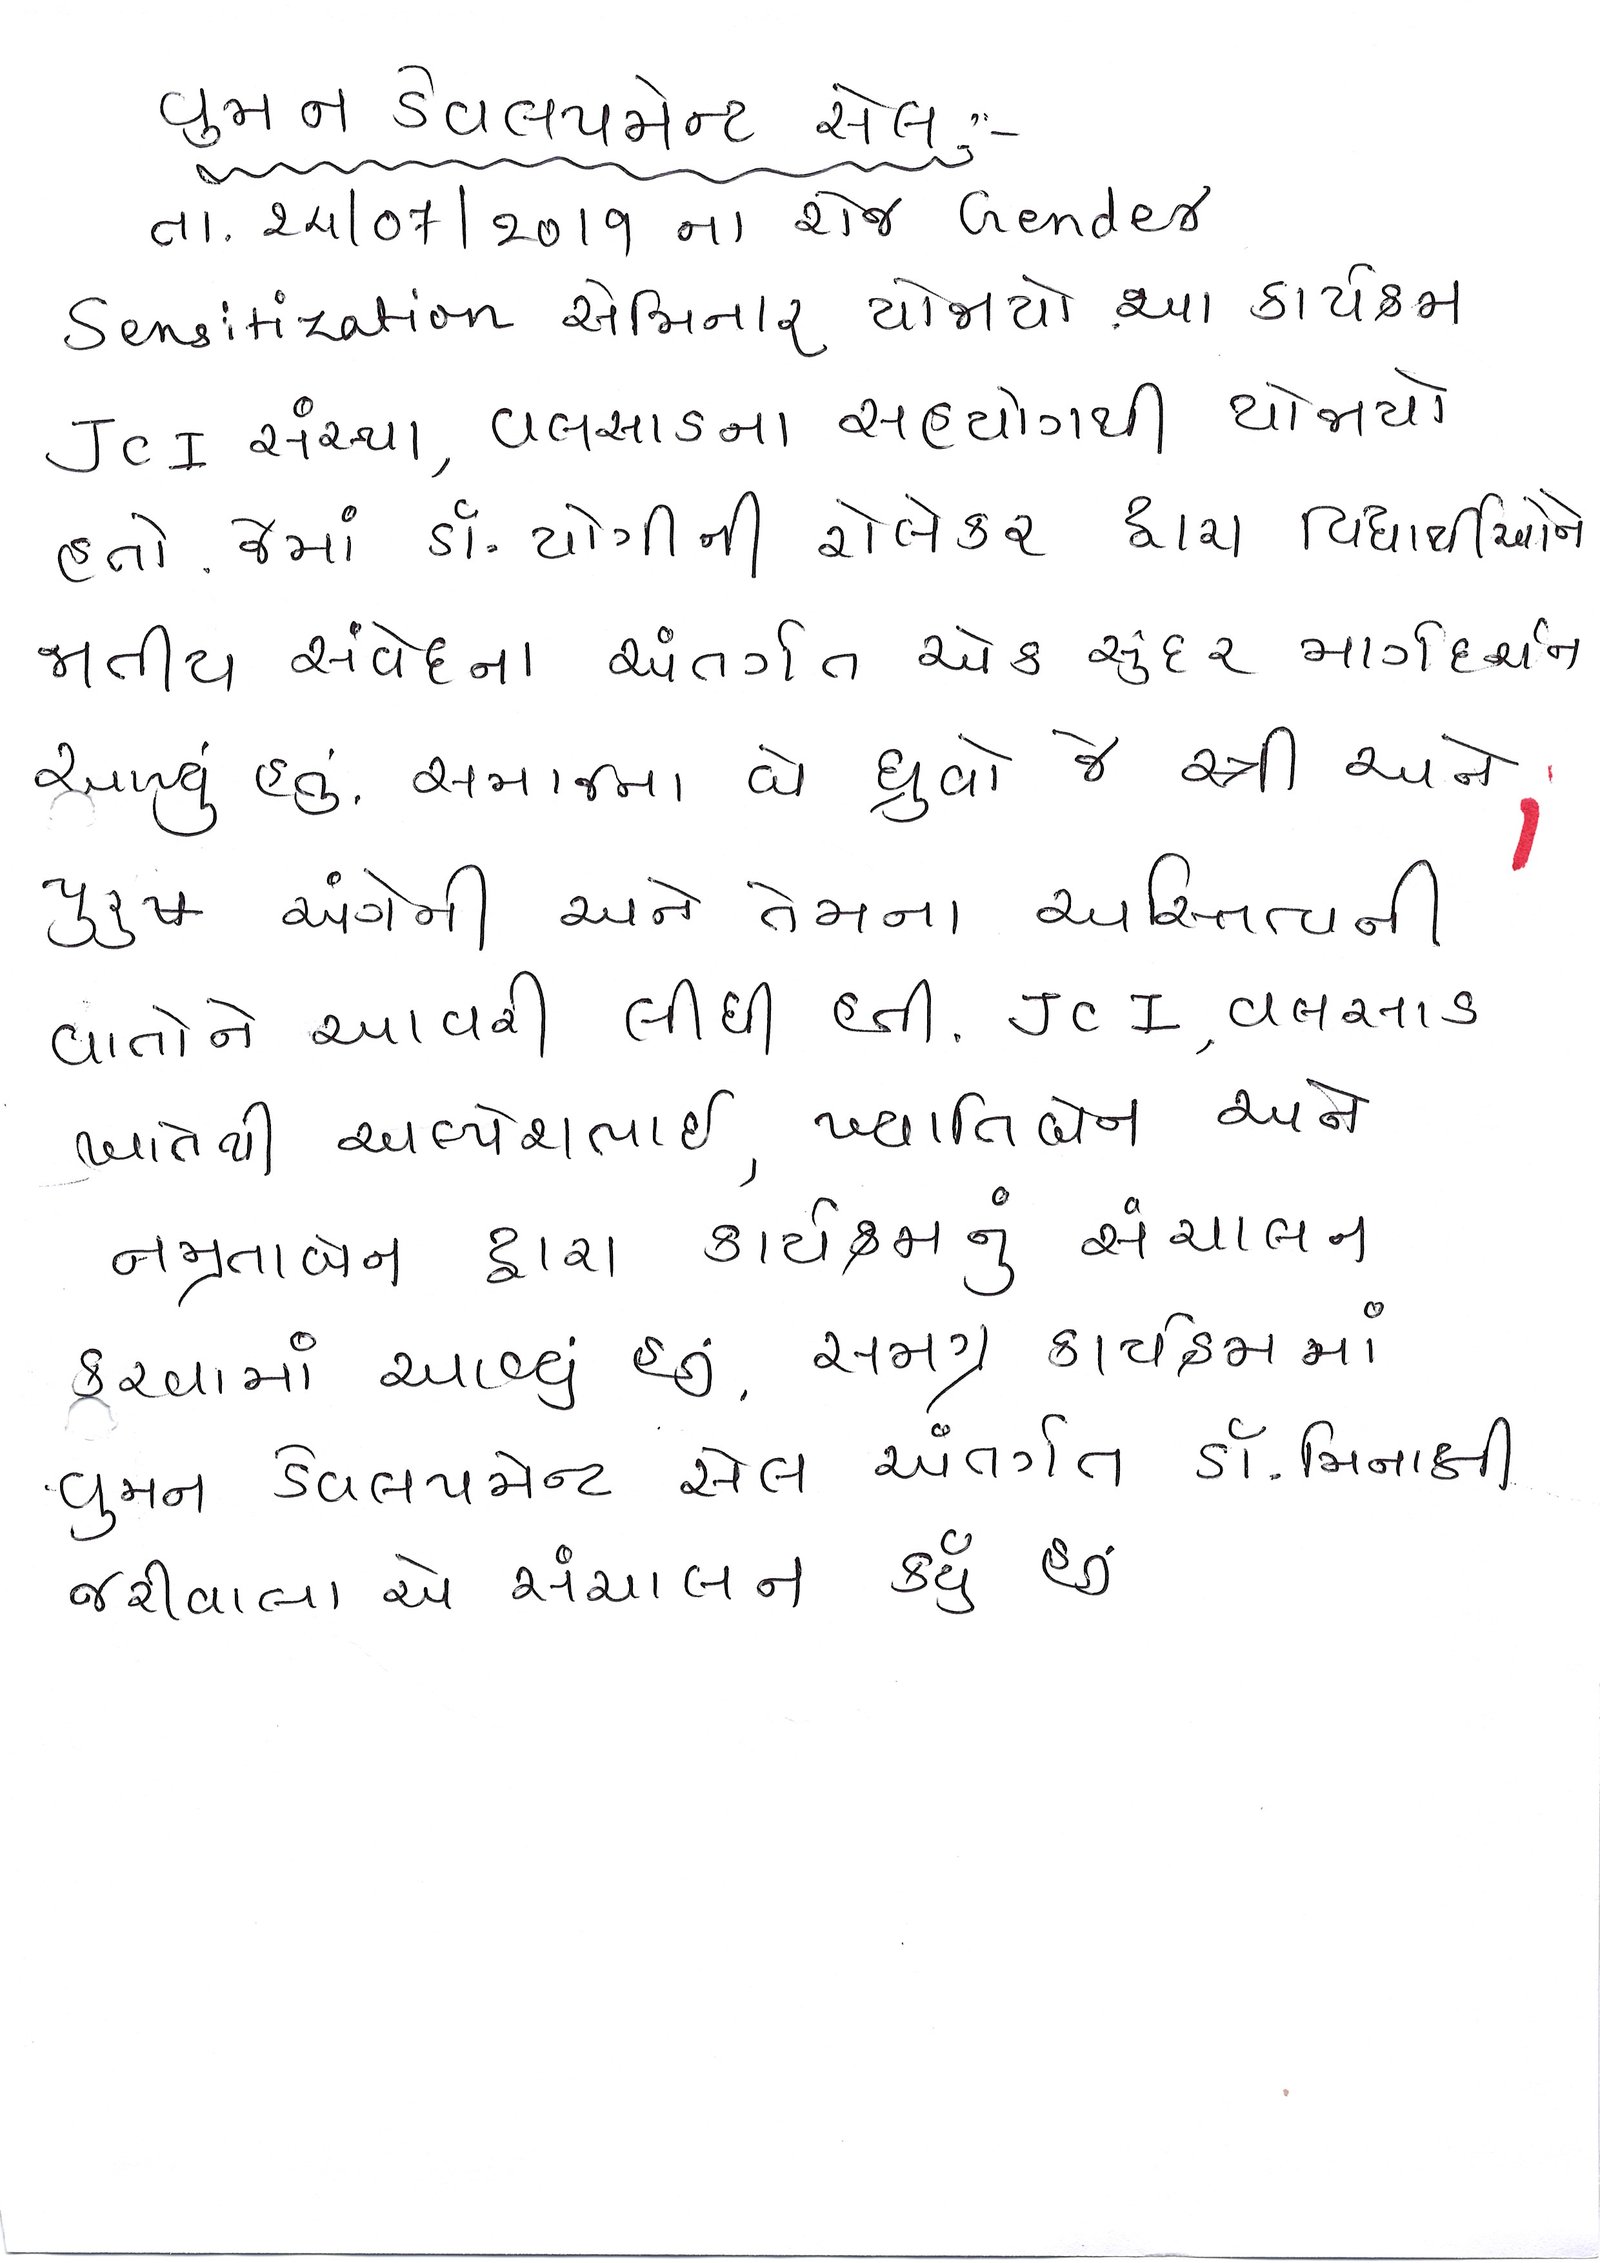 વુમન ડેવલપમેન્ટ સેલ :-
તા. ૨૫/૦૭/૨૦૧૯ ના રોજ Gender
Sensitization સેમિનાર યોજાયો. આ કાર્યક્રમ
JCI સંસ્થા, વલસાડના સહયોગથી યોજાયો
હતો. જેમાં ડૉ. યોગીની રોલેકર દ્વારા વિદ્યાર્થીઓને
જાતીય સંવેદના અંતર્ગત એક સુંદર માર્ગદર્શન
આપ્યું હતું. સમાજના બે ધ્રુવો જે સ્ત્રી અને
પુરુષ અંગેની અને તેમના અસ્તિત્વની
વાતોને આવરી લીધી હતી. JCI, વલસાડ
ખાતેથી અલ્પેશભાઈ, ખ્યાતિબેન અને
નમ્રતાબેન દ્વારા કાર્યક્રમનું સંચાલન
કરવામાં આવ્યું હતું. સમગ્ર કાર્યક્રમમાં
વુમન ડેવલપમેન્ટ સેલ અંતર્ગત ડૉ. મિનાક્ષી
જરીવાલા એ સંચાલન કર્યું હતું